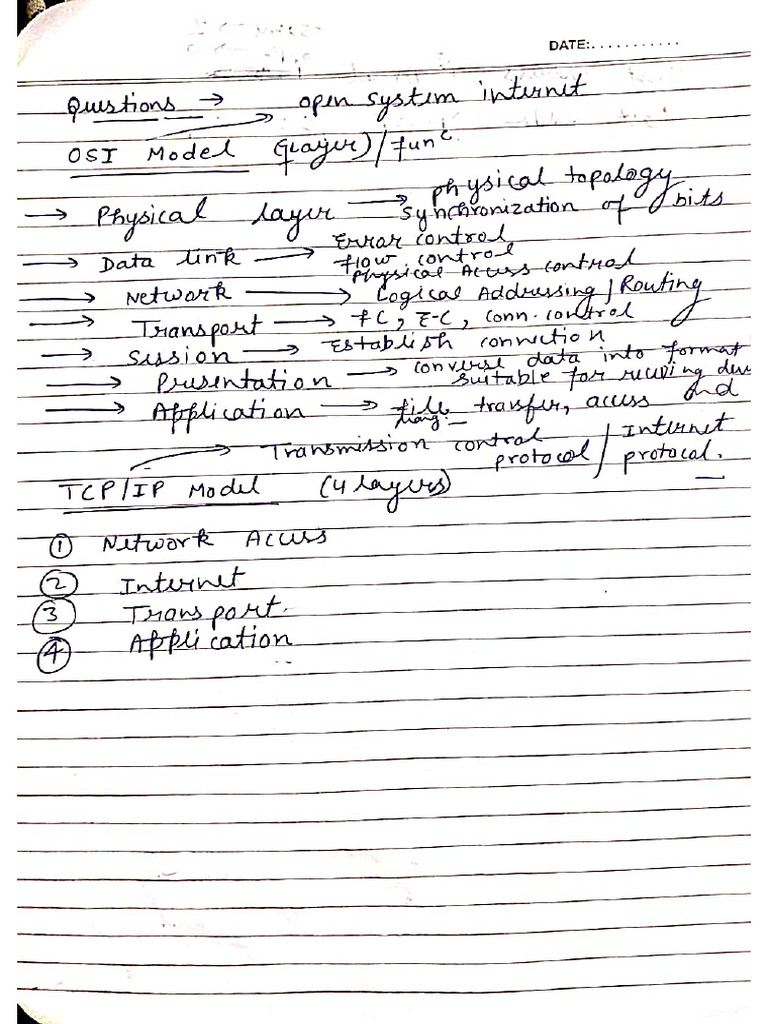 DATE:...........
Questions → open system internet
OSI Model (7 Layer) / func
→ Physical layer → physical topology
synchronization of bits
→ Data link → Error control
flow control
Physical Access control
→ Network → Logical Addressing / Routing
→ Transport → FC, E-C, conn. control
→ Session → Establish connection
→ Presentation → converse data into format
suitable for receiving
→ Application → file transfer, access and
Transmission control protocol / Internet protocol.
TCP/IP Model (4 layers)
① Network Access
② Internet
③ Transport.
④ Application